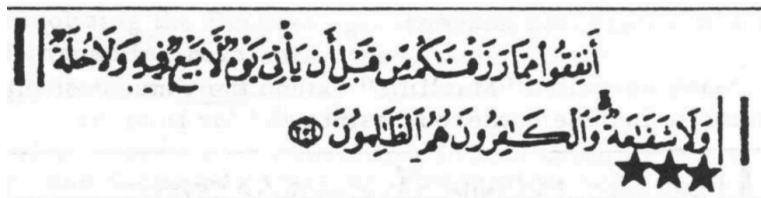 أَنفِقُوا۟ مِمَّا رَزَقْنَـٰكُم مِّن قَبْلِ أَن يَأْتِىَ يَوْمٌ لَّا بَيْعٌ فِيهِ وَلَا خُلَّةٌ
وَلَا شَفَـٰعَةٌ ۗ وَٱلْكَـٰفِرُونَ هُمُ ٱلظَّـٰلِمُونَ ﴿٢٥٤﴾